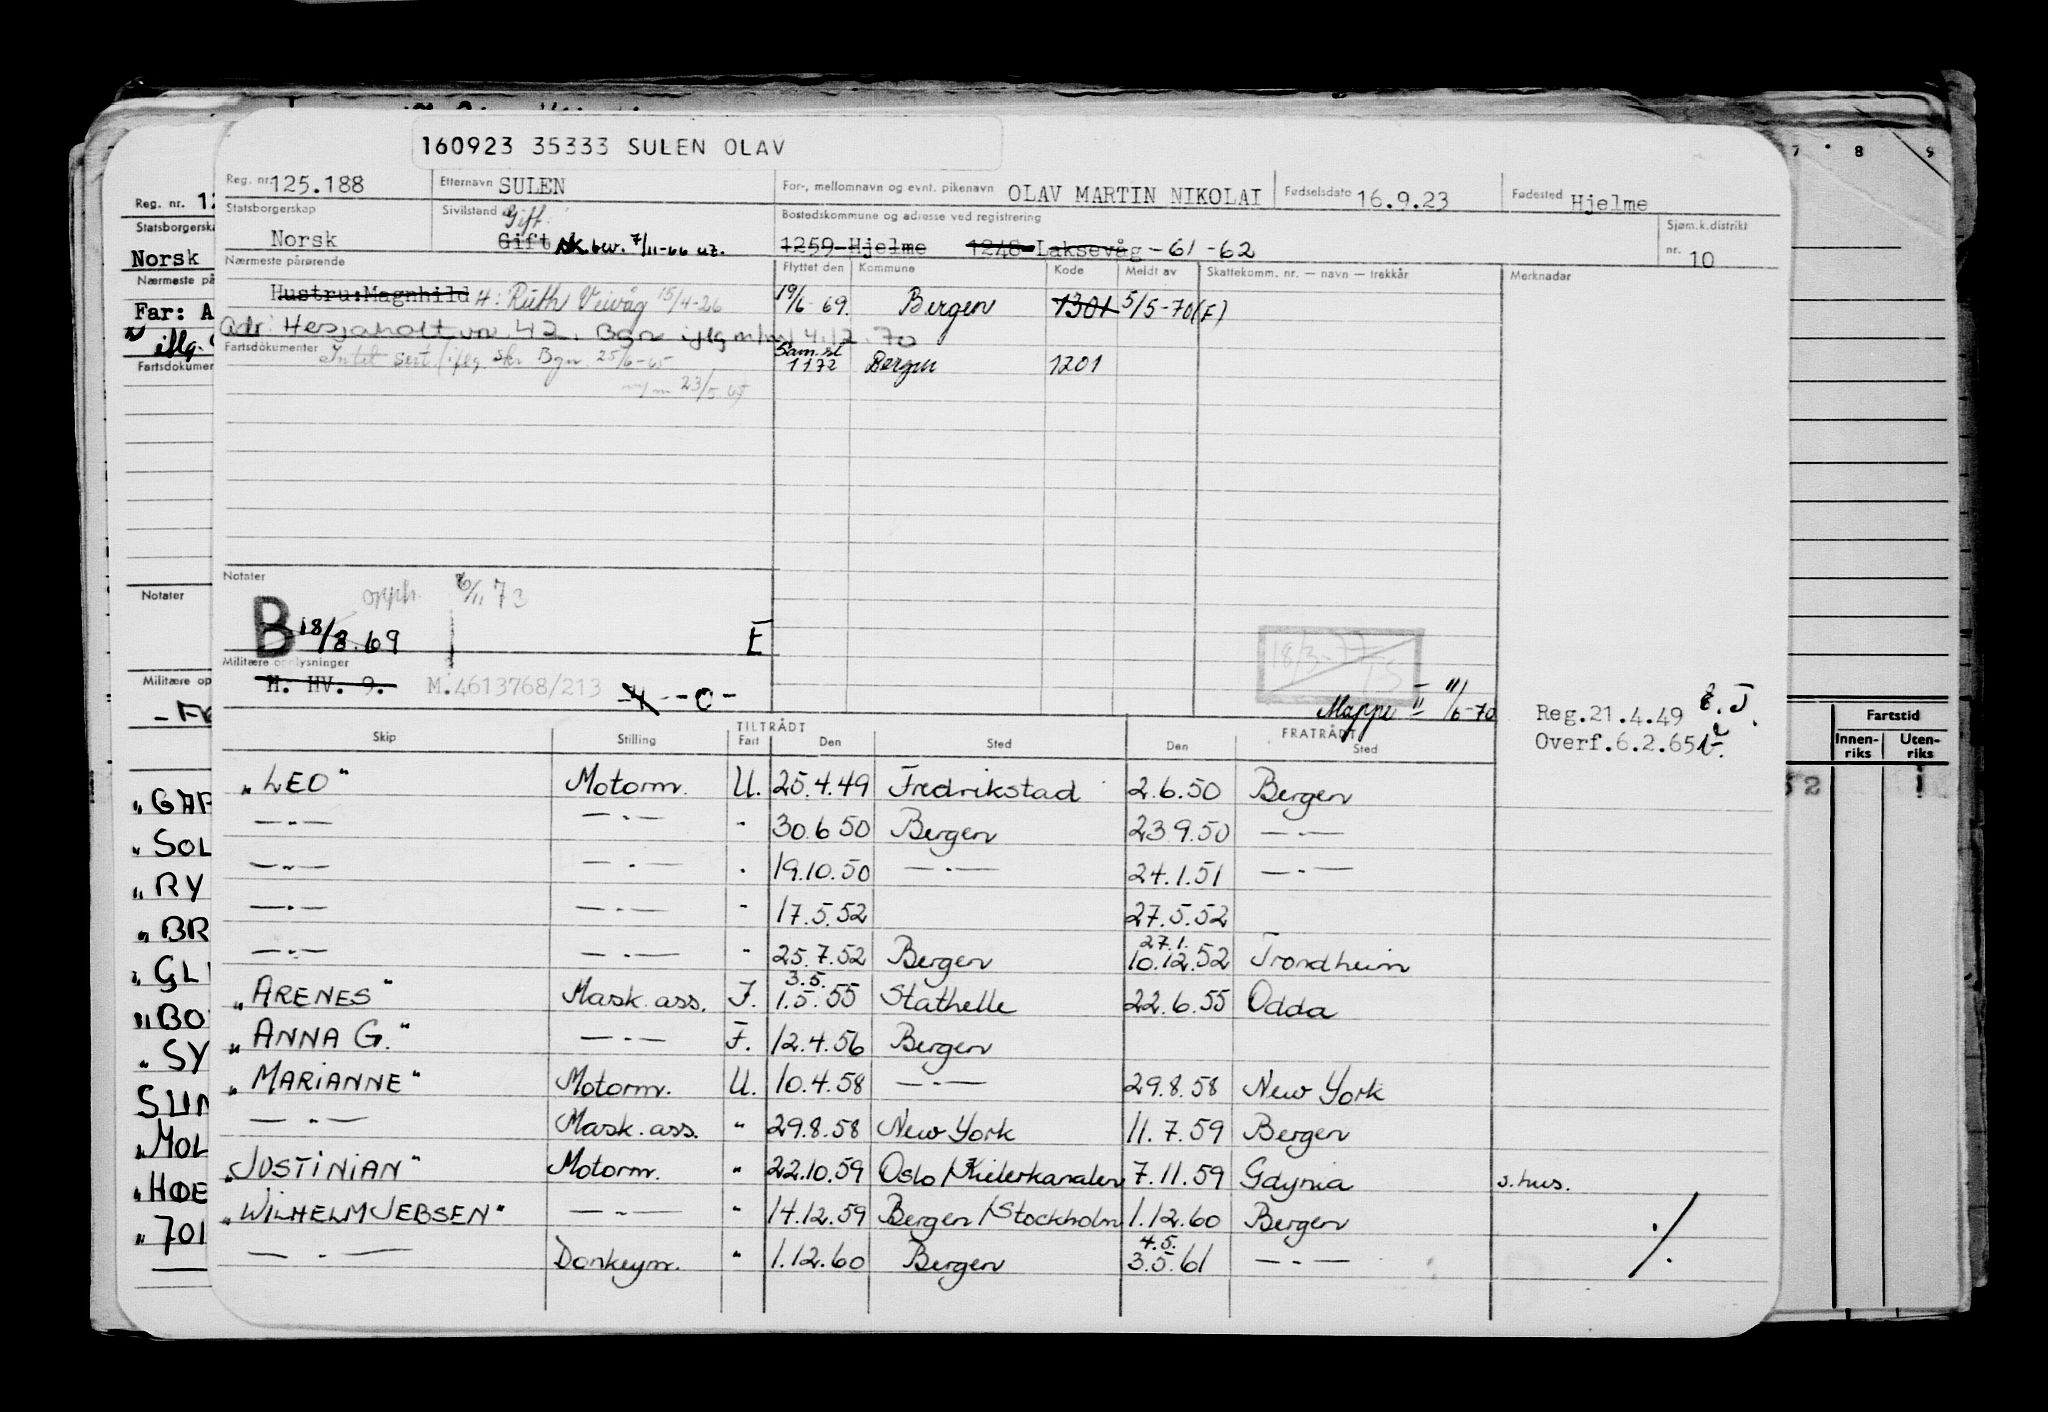 160923 35333 SULEN OLAV
Reg. nr. 125.188 Etternavn SULEN For-, mellomnavn og evnt. pikenavn OLAV MARTIN NIKOLAI Fødselsdato 16.9.23 Fødested Hjelme
Statsborgerskap Norsk Sivilstand Gift Gift bev. 7/11-66 Bostedskommune og adresse ved registrering 1259 Hjelme 1248 Laksevåg -61 -62 Sjøm.k.distrikt nr. 10
Nærmeste pårørende Flyttet den Kommune Kode Meldt av Skattekomm. nr. — navn — trekkår Merknader
Hustru: Magnhild H: Ruth Veivåg 15/4-26 19/6-69. Bergen 1301 5/5-70(F)
Adr: Hesjaholtvn 42, Bgn iflg m/bl 4.12.70
Fartsdokumenter Intet sert iflg. skr Bgn 25/6-65 Sam.sl 1172 Bergen 1201
23/5.65
Notater
opph. 6/11 73
B 18/8.69 E
18/3-77
Militære opplysninger
H: HV. 9. M.4613768/213 - -0-
Mappe II 11/6-70
Reg.21.4.49
Overf.6.2.65
TILTRÅDT FRATRÅDT
Skip Stilling Fart Den Sted Den Sted
„LEO" Motorm. U. 25.4.49 Fredrikstad 2.6.50 Bergen
—"— —"— " 30.6 50 Bergen 23 9.50 —"—
—"— —"— " 19.10.50 —"— 24.1.51 —"—
—"— —"— " 17.5.52 27.5.52
—"— —"— " 25.7.52 Bergen 27.1. 10.12.52 Trondheim
„ARENES" Mask. ass. I. 3.5. 1.5.55 Stathelle 22.6.55 Odda
„ANNA G." —"— F. 12.4.56 Bergen
„MARIANNE" Motorm. U. 10.4.58 —"— 29.8.58 New York
—"— Mask. ass. " 29.8.58 New York 11.7.59 Bergen
„JUSTINIAN" Motorm. " 22.10.59 Oslo/Kielerkanalen 7.11.59 Gdynia s.hus.
„WILHELM JEBSEN" —"— " 14.12.59 Bergen/Stockholm 1.12.60 Bergen ./.
—"— Donkeym. " 1.12.60 Bergen 4.5. 3.5.61 —"—
Reg. nr. 12
Statsborgerska
Norsk
Nærmeste på
Far: A
iflg.
Fartsdokumen
Notater
Militære op
„GAR
„SOL
„RY
„BR
„GL
„BO
„SY
SUN
„MOL
„HØE
„701
7 8 9
Fartstid
Innenriks Utenriks
52